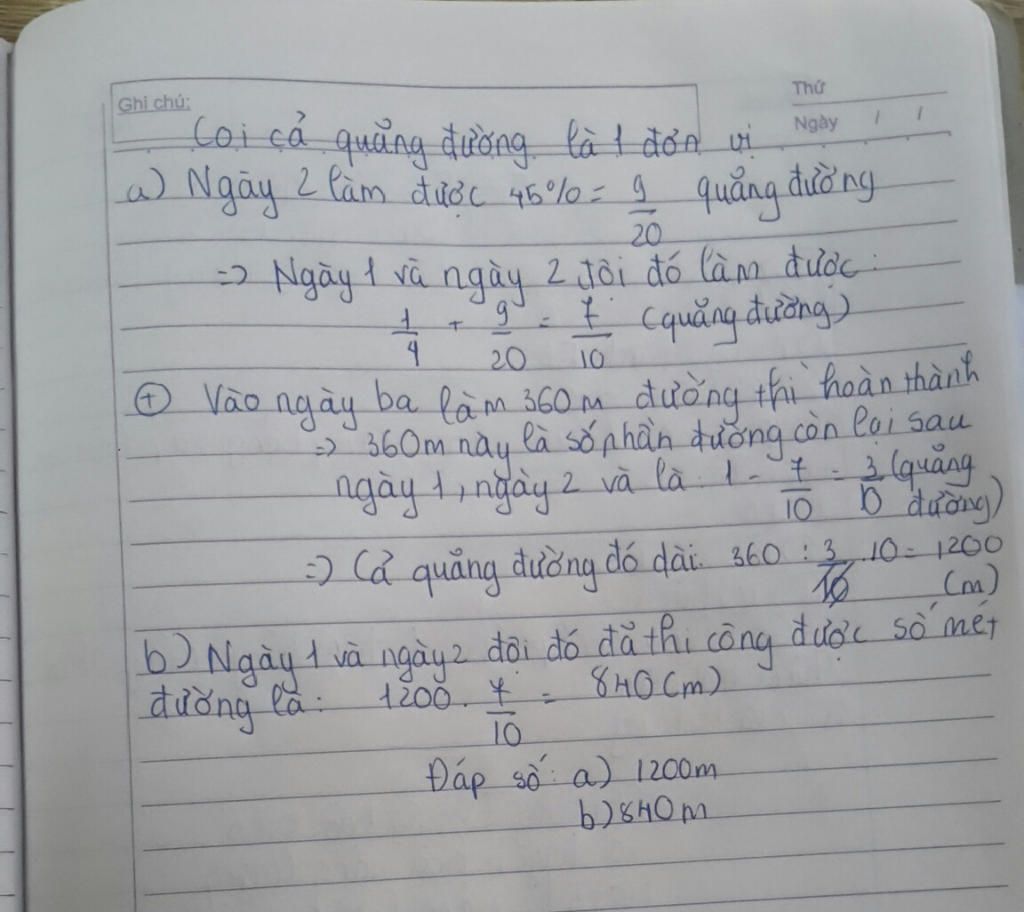 Ghi chú:
Thứ
Ngày / /
Coi cả quãng đường là 1 đơn vị
a) Ngày 2 làm được 45% = 9/20 quãng đường
=> Ngày 1 và ngày 2 đội đó làm được:
1/4 + 9/20 = 7/10 (quãng đường)
⊕ Vào ngày ba làm 360m đường thì hoàn thành
=> 360m này là số phần đường còn lại sau
ngày 1, ngày 2 và là: 1 - 7/10 = 3/10 (quãng
đường)
=> Cả quãng đường đó dài: 360 : 3/10 . 10 = 1200
(m)
b) Ngày 1 và ngày 2 đội đó đã thi công được số mét
đường là: 1200 . 7/10 = 840 (m)
Đáp số: a) 1200m
b) 840m